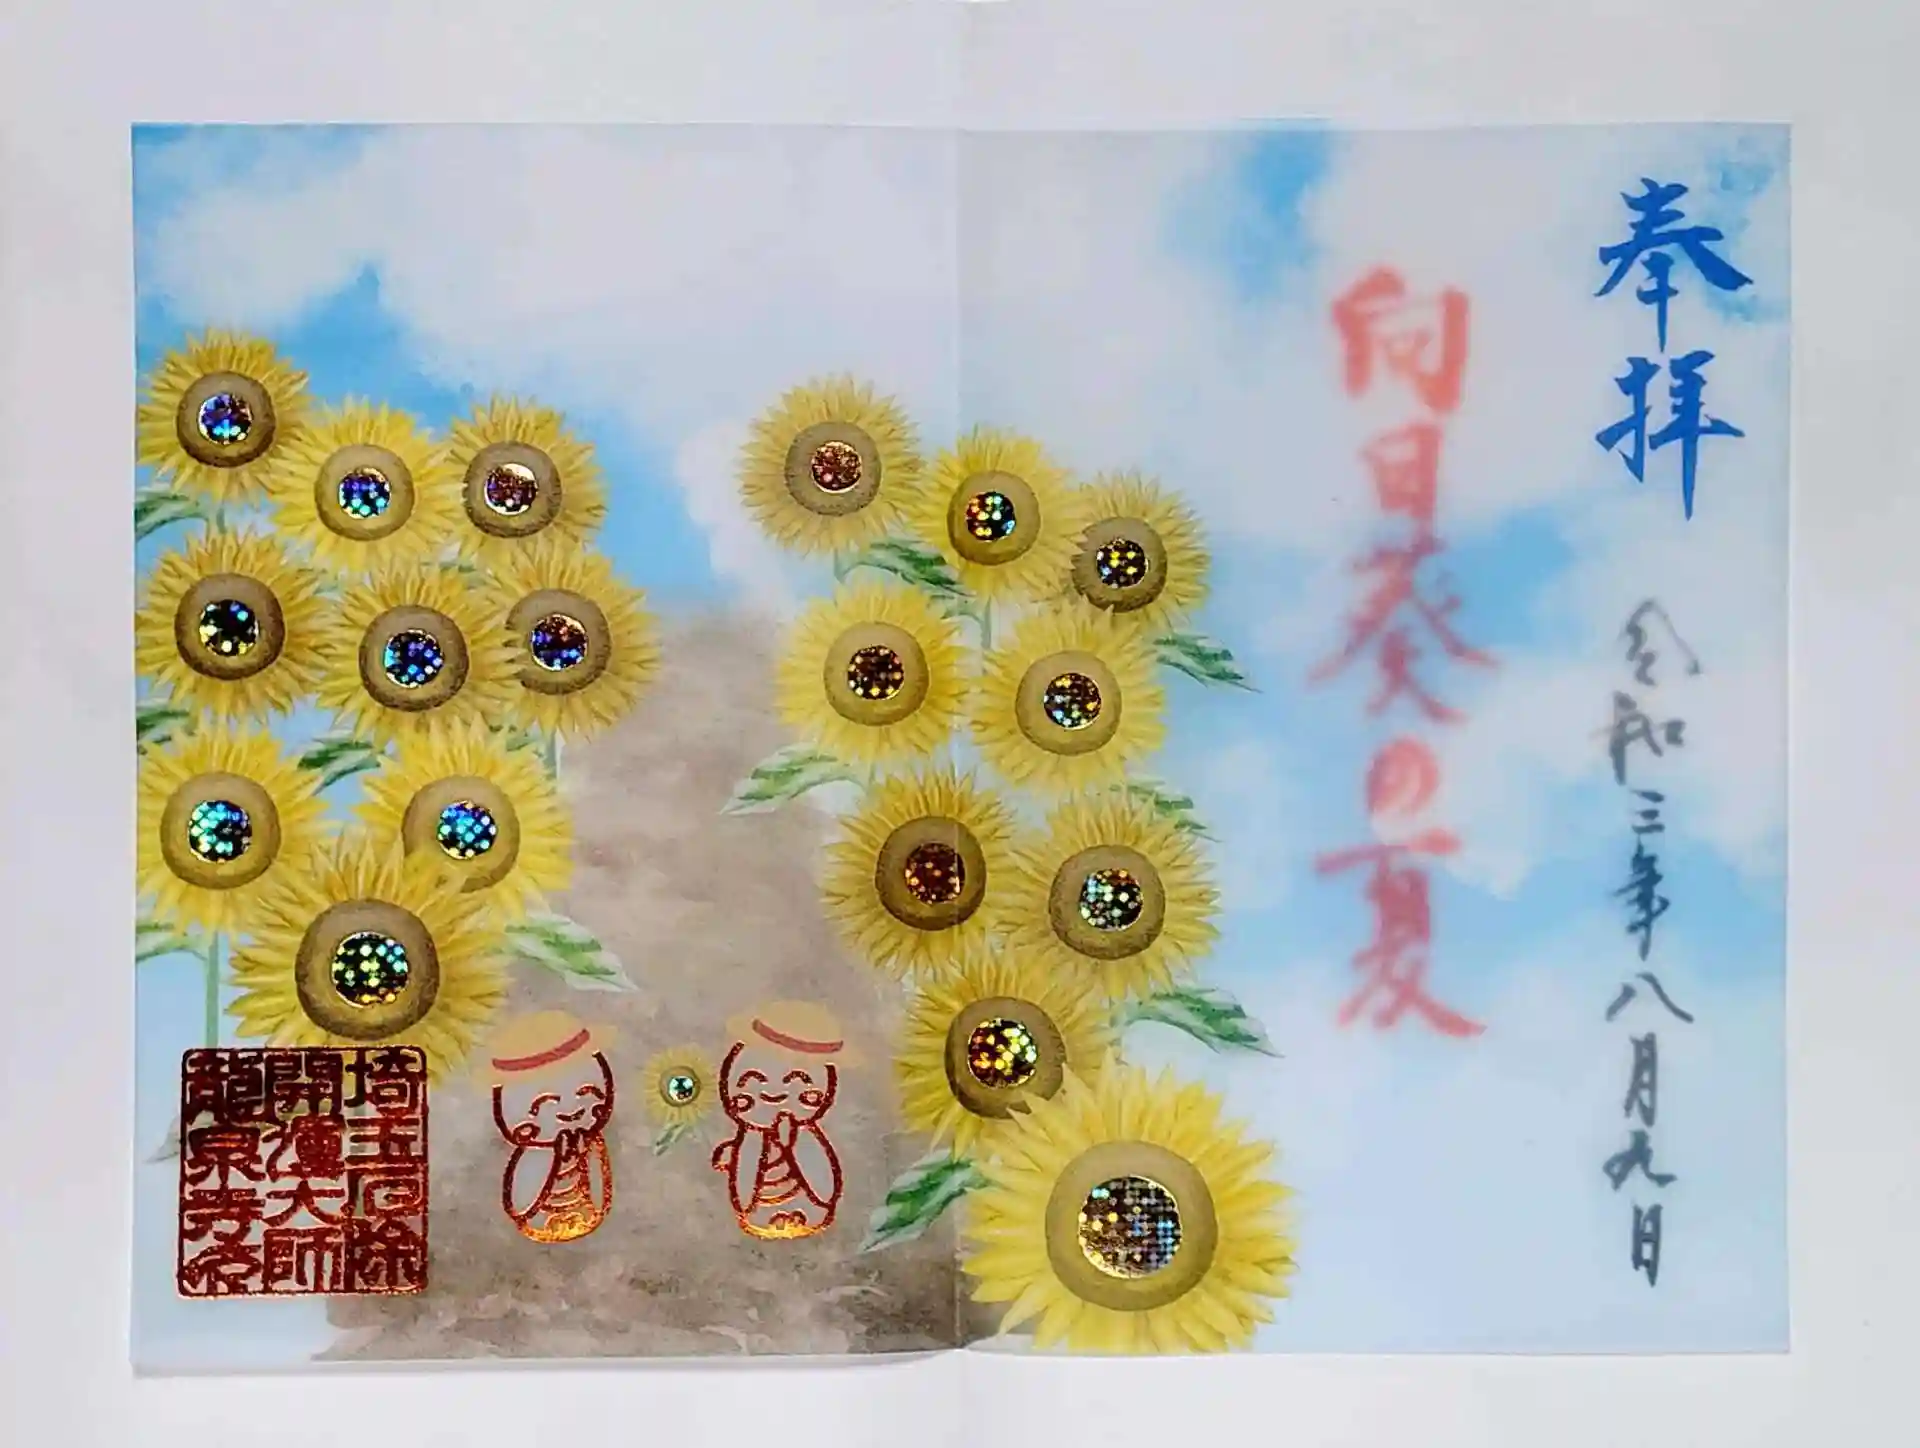 奉拝
令和三年八月九日
向日葵の夏
埼玉厄除
開運大師
龍泉寺